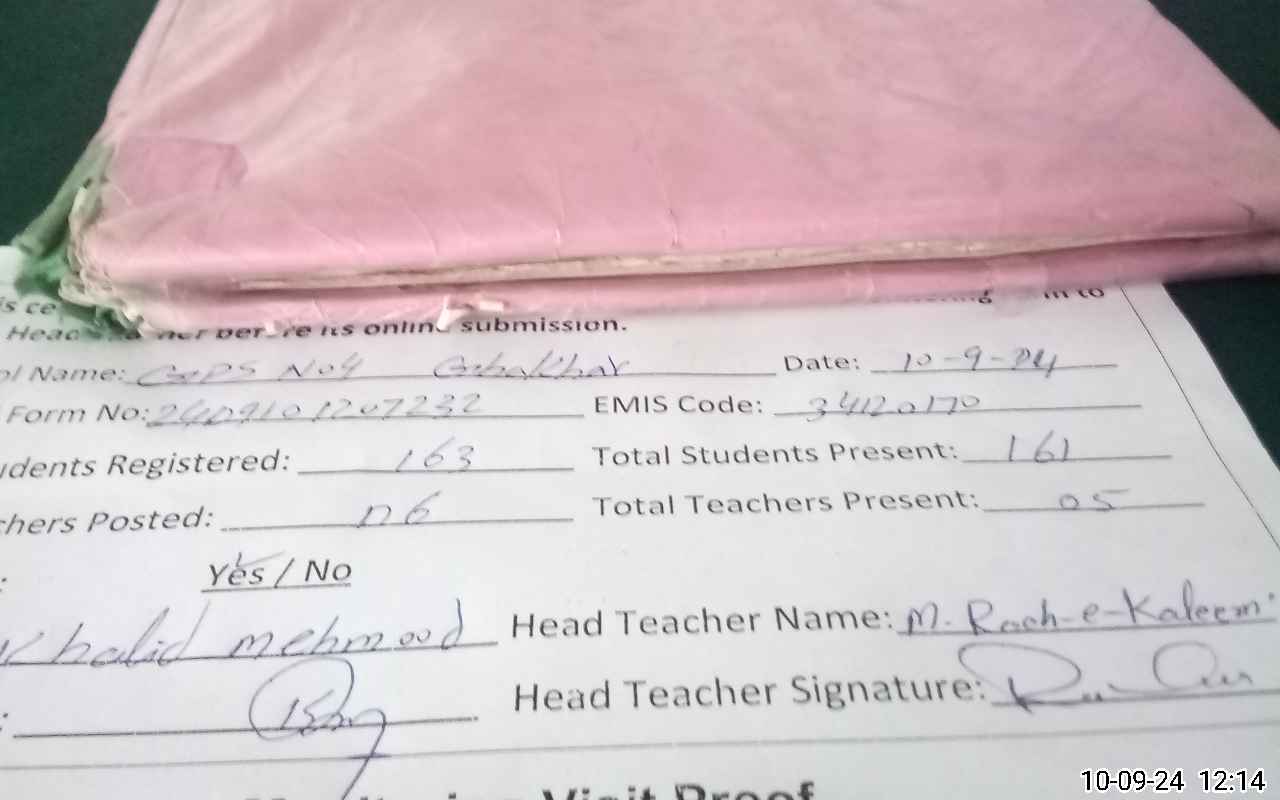 submission.
ol Name: GGPS No4 Gehakhar Date: 10-9-24
Form No: 2409101207232 EMIS Code: 34120170
udents Registered: 163 Total Students Present: 161
chers Posted: 06 Total Teachers Present: 05
: Yes / No
Khalid mehmood Head Teacher Name: M. Rooh-e-Kaleem
: Head Teacher Signature:
Visit Proof
10-09-24 12:14